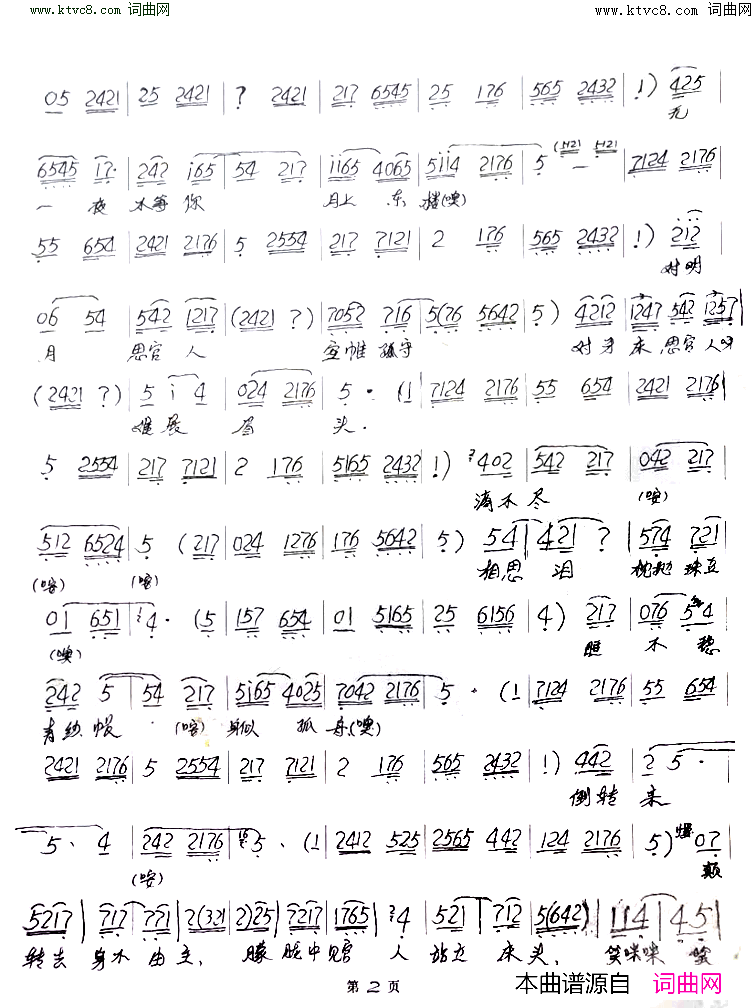 www.ktvc8.com 词曲网 www.ktvc8.com 词曲网
05 2421 | 25 2421 | ? 2421 | 217 6545 | 25 176 | 565 2432 | 1) 425
无
6545 17· | 242 i65 | 54 217 | ii65 4065 | 5ii4 2176 | 5 — | 7124 2176
一 夜 不等你 月上 东楼(噢)
55 654 | 2421 2176 | 5 2554 | 217 7121 | 2 176 | 565 2432 | 1) 212
对明
06 54 | 542 1217 | (2421 ?) | 7052 716 | 5(76 5642 | 5) 4212 | 1247 542 1257
月 思官 人 空帷 孤守 对牙 床 思官 人呀
(2421 ?) | 5 i 4 | 024 2176 | 5 · (1 | 7124 2176 | 55 654 | 2421 2176
难展 眉 头.
5 2554 | 217 7121 | 2 176 | 5165 2432 | 1) 402 | 542 217 | 042 217
滴不尽 (咹)
512 6524 | 5 (217 | 024 1276 | 176 5642 | 5) 54 | 421 ? | 574 721
(咹) (咹) 相思 泪 枕抛 珠豆
01 651 | 4 · (5 | 157 654 | 01 5165 | 25 6156 | 4) 217 | 076 5 4
(噢) 睡 不 稳
242 5 | 54 217 | 5i65 4025 | 7042 2176 | 5 · (1 | 7124 2176 | 55 654
青纱帐 (咹) 身似 孤舟(噢)
2421 2176 | 5 2554 | 217 7121 | 2 176 | 565 2432 | 1) 442 | 2 5 ·
倒转 来
5 · 4 | 242 2176 | 5 · (1 | 2412 525 | 2565 442 | 124 2176 | 5) 07
(咹) 颠
5217 | 717 771 | 2(321 | 2)25 | 7217 | 1765 | 4 | 521 712 | 5(642) | 114 | 45
转去 身不 由主, 朦胧中见官 人 站立 床头, 笑咪咪
第2页
本曲谱源自 词曲网